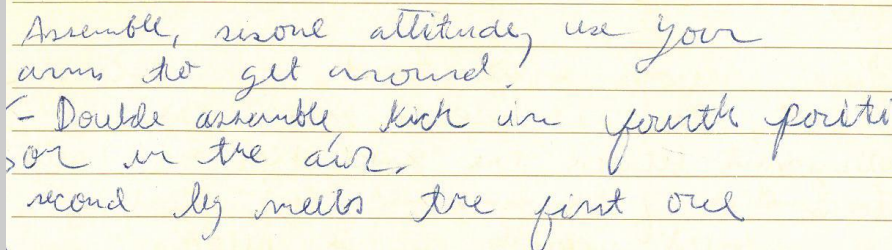 Assemble, sisone attitude, use your
arms to get around!
- Double assemble, kick in fourth positi
on in the air.
second leg meets the first one